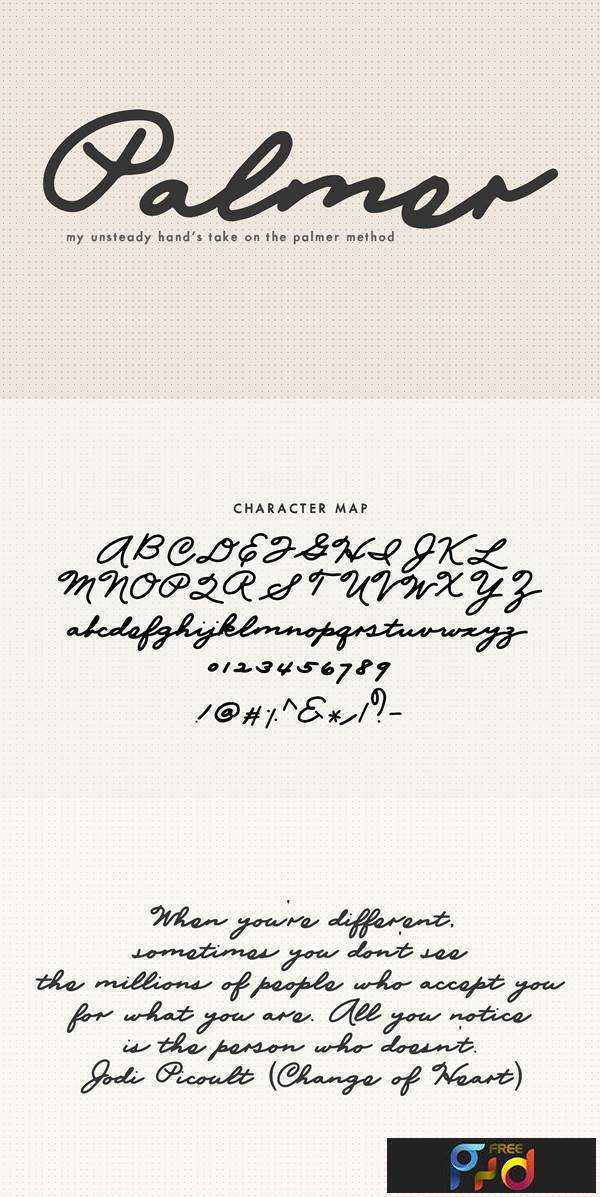 Palmer
my unsteady hand's take on the palmer method
CHARACTER MAP
ABCDEFGHIJKL
MNOPQRSTUVWXYZ
abcdefghijklmnopqrstuvwxyz
0123456789
!@#%^&*,/?-
When you're different,
sometimes you don't see
the millions of people who accept you
for what you are. All you notice
is the person who doesn't.
Jodi Picoult (Change of Heart)
FREE